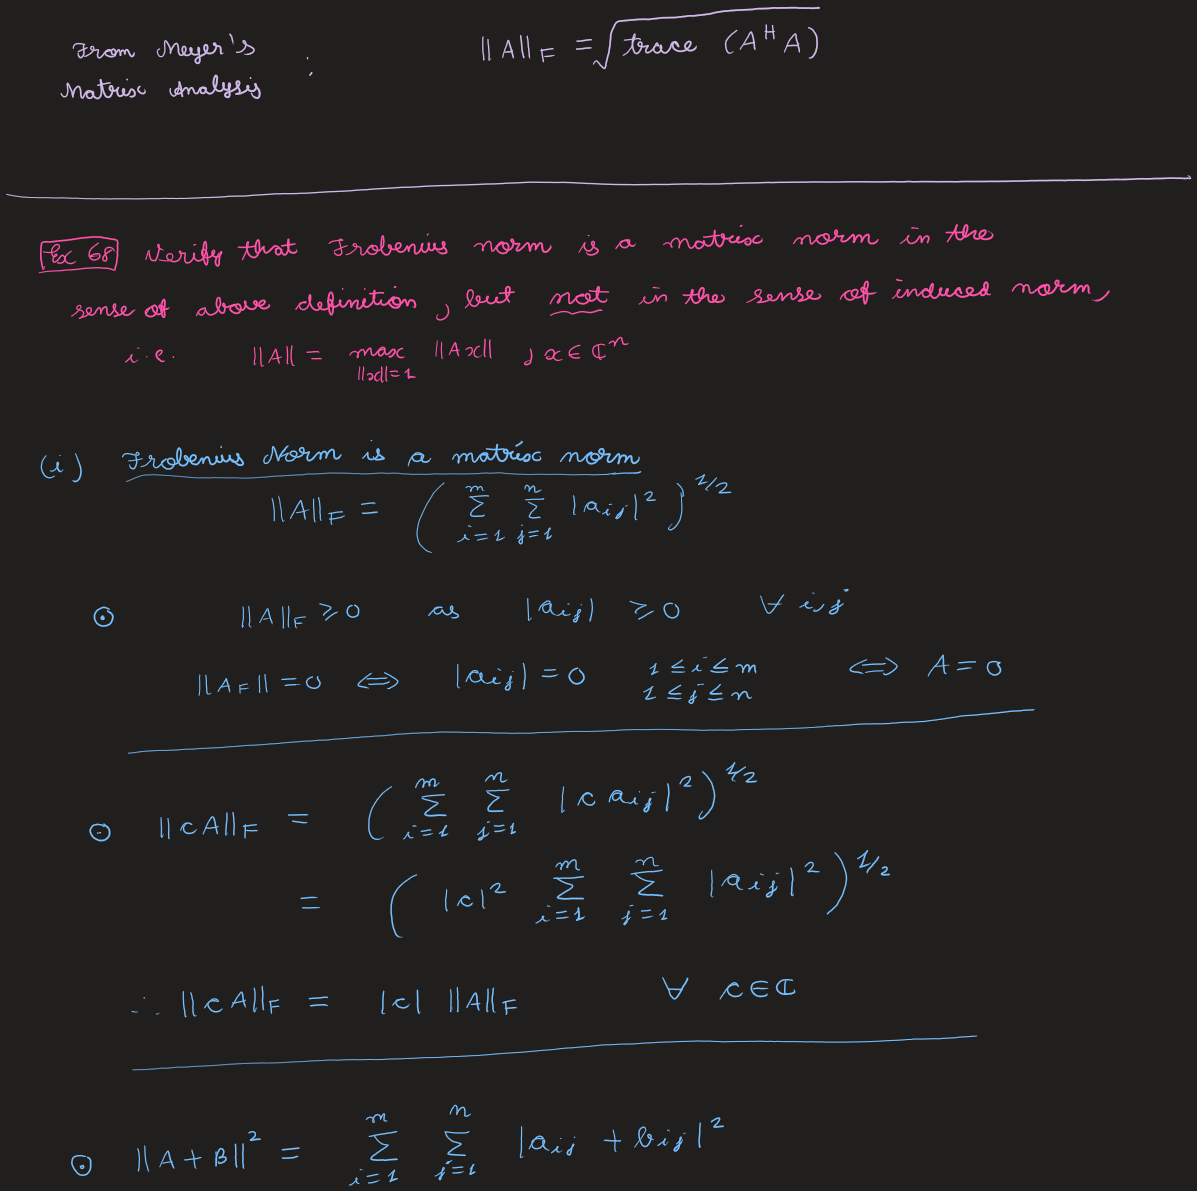 From Meyer's
Matrix Analysis : ||A||_F = √(trace (A^H A))
Ex 68 Verify that Frobenius norm is a matrix norm in the
sense of above definition, but not in the sense of induced norm,
i.e. ||A|| = max_{||x||=1} ||Ax|| , x ∈ ℂ^n
(i) Frobenius Norm is a matrix norm
||A||_F = ( ∑_{i=1}^{m} ∑_{j=1}^{n} |a_ij|^2 )^{1/2}
⊙ ||A||_F ⩾ 0 as |a_ij| ⩾ 0 ∀ i,j
||A_F|| = 0 ⟺ |a_ij| = 0 1 ≤ i ≤ m 1 ≤ j ≤ n ⟺ A = 0
⊙ ||cA||_F = ( ∑_{i=1}^{m} ∑_{j=1}^{n} |c a_ij|^2 )^{1/2}
= ( |c|^2 ∑_{i=1}^{m} ∑_{j=1}^{n} |a_ij|^2 )^{1/2}
∴ ||cA||_F = |c| ||A||_F ∀ c ∈ ℂ
⊙ ||A + B||^2 = ∑_{i=1}^{m} ∑_{j=1}^{n} |a_ij + b_ij|^2